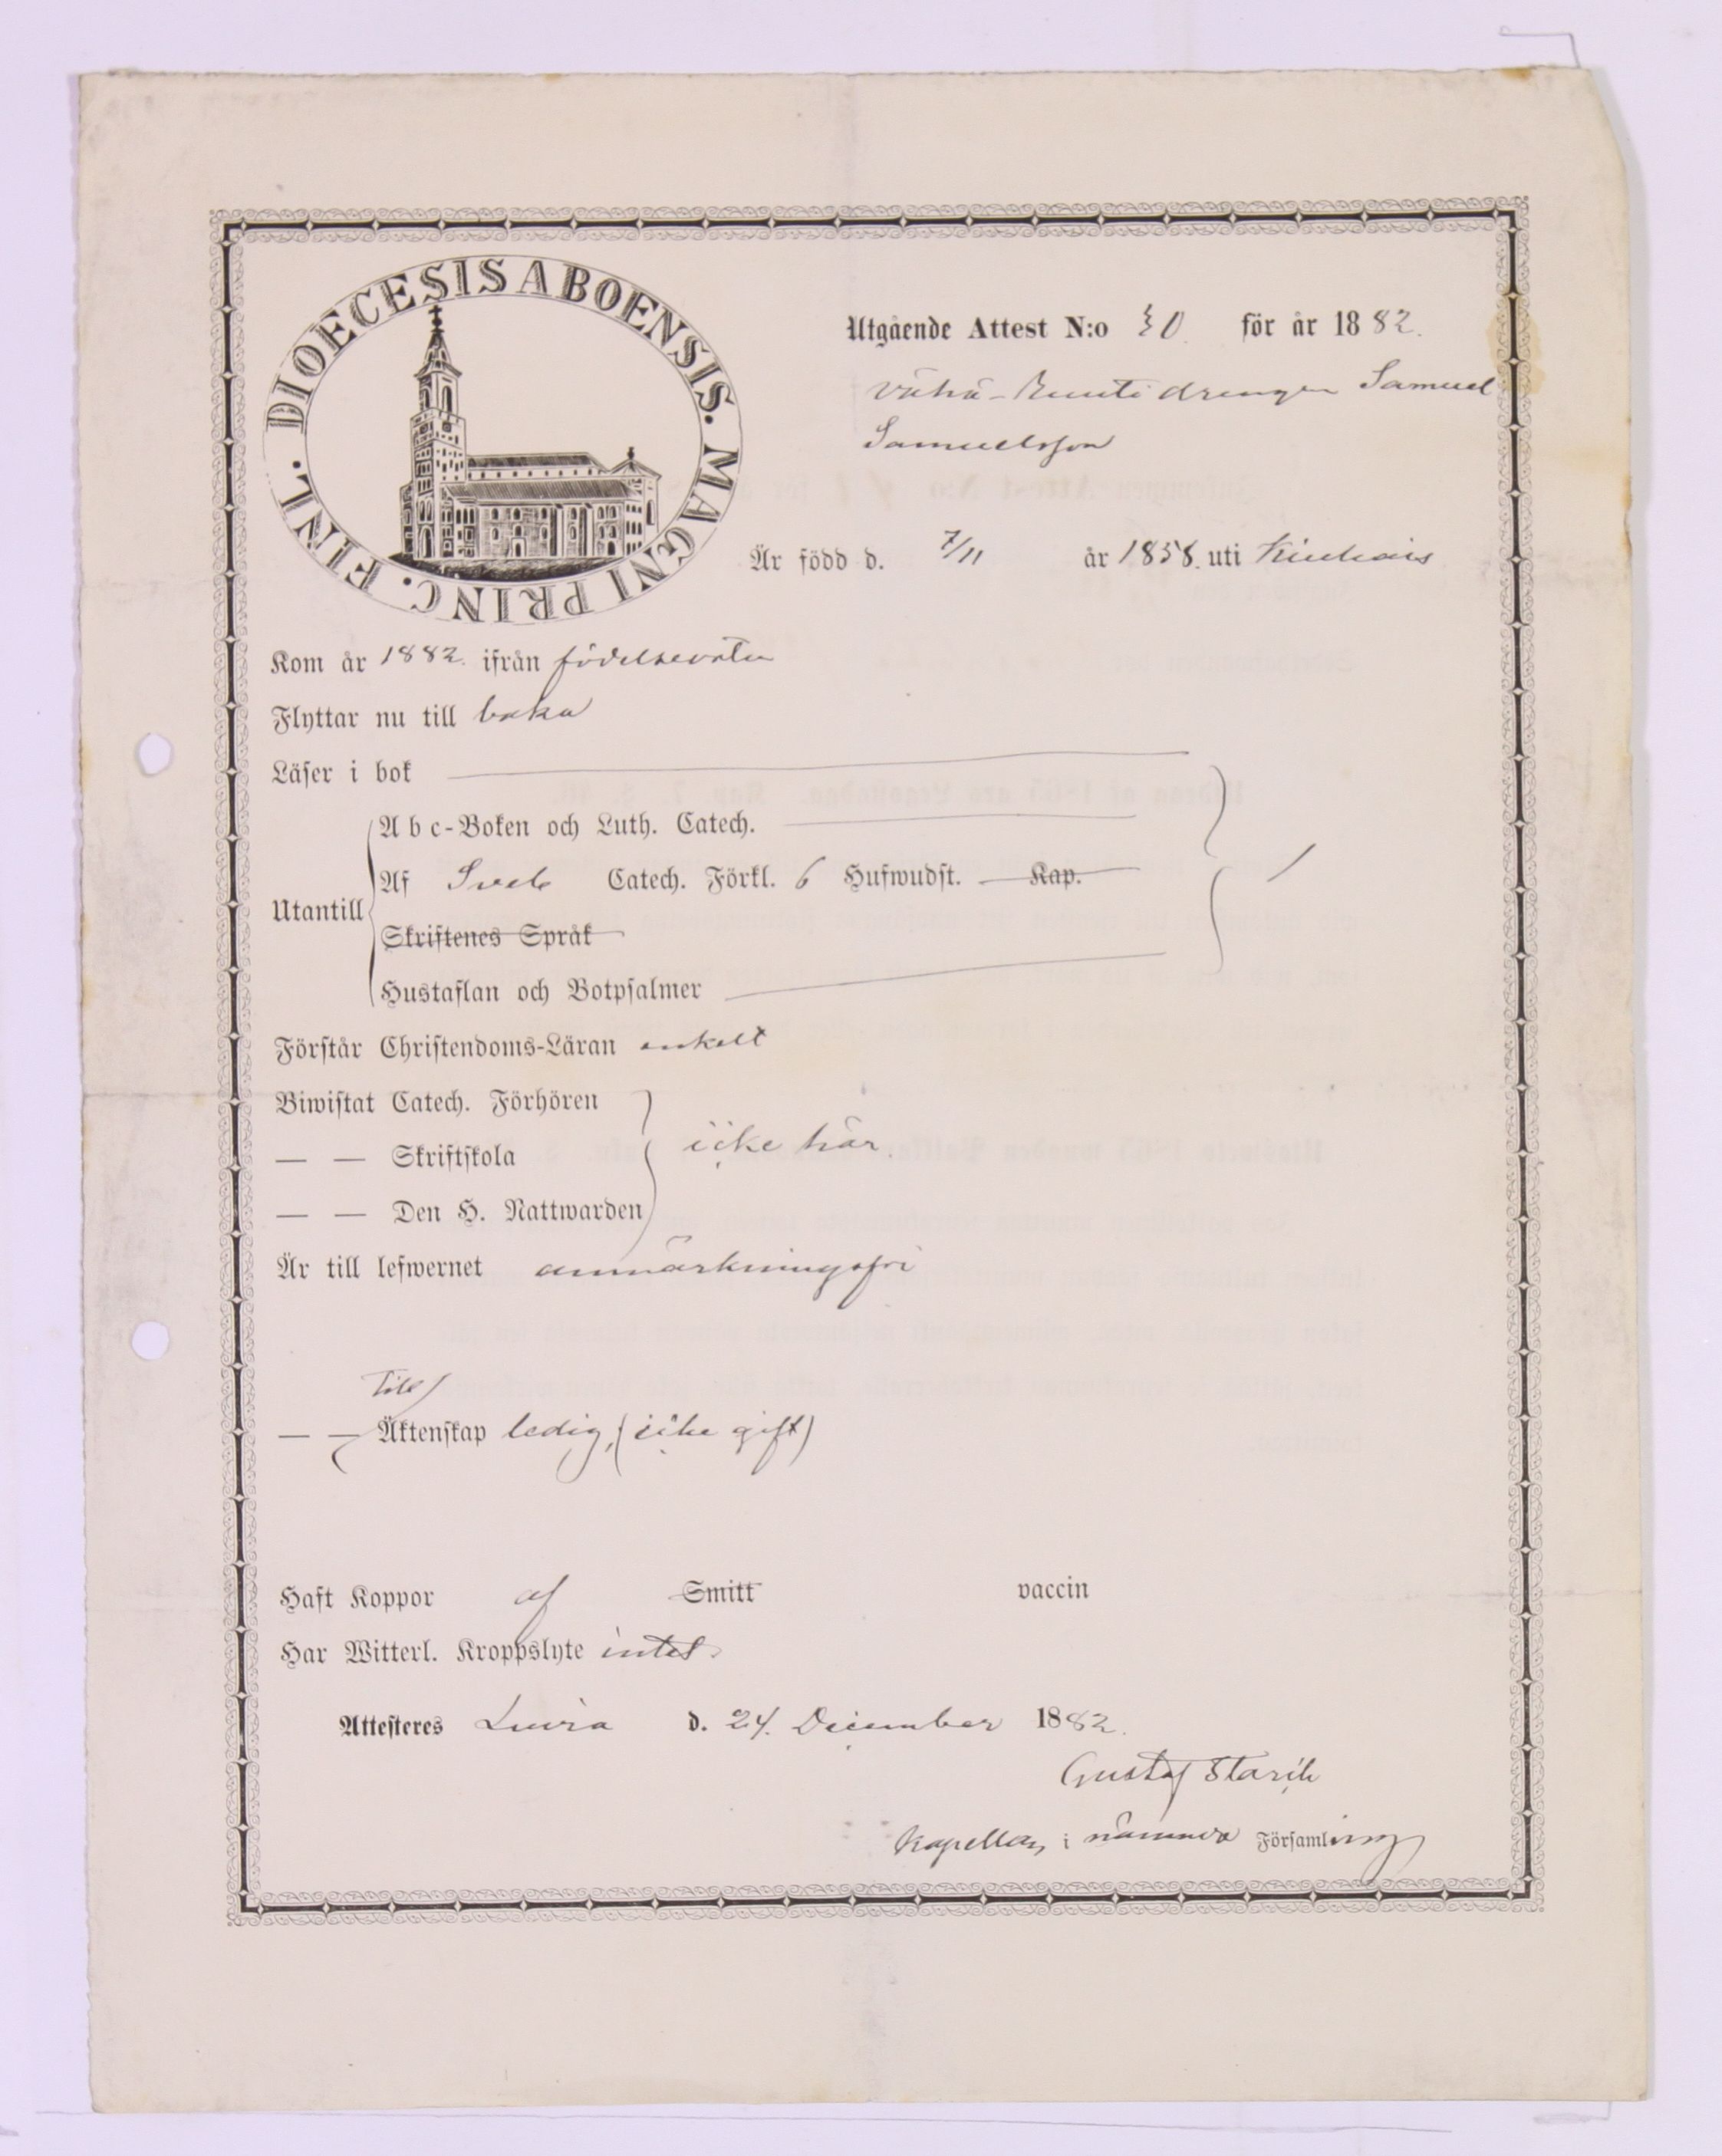 DIOECESIS ABOENSIS. MAGNI PRINC. FINL.
Utgående Attest N:o 30. för år 1882.
Vähä-Drengen Samuel
Samuelsson
Är född d. 7/11 år 1858. uti
Kom år 1882. ifrån födelseorten
Flyttar nu till baka
Läser i bok
Utantill
A b c-Boken och Luth. Catech.
Af Sveb Catech. Förkl. 6 Hufwudst. Kap.
Skriftenes Språk
Hustaflan och Botpsalmer
Förstår Christendoms-Läran enkelt
Biwistat Catech. Förhören
— — Skriftskola icke här.
— — Den H. Nattwarden
Är till lefwernet anmärkningsfri
till
— — Äktenskap ledig, (icke gift)
Haft Koppor af Smitt vaccin
Har Witterl. Kroppslyte intet
Attesteres Luvia d. 24. December 1882.
Gustaf
Kapellan i nämnda Församling